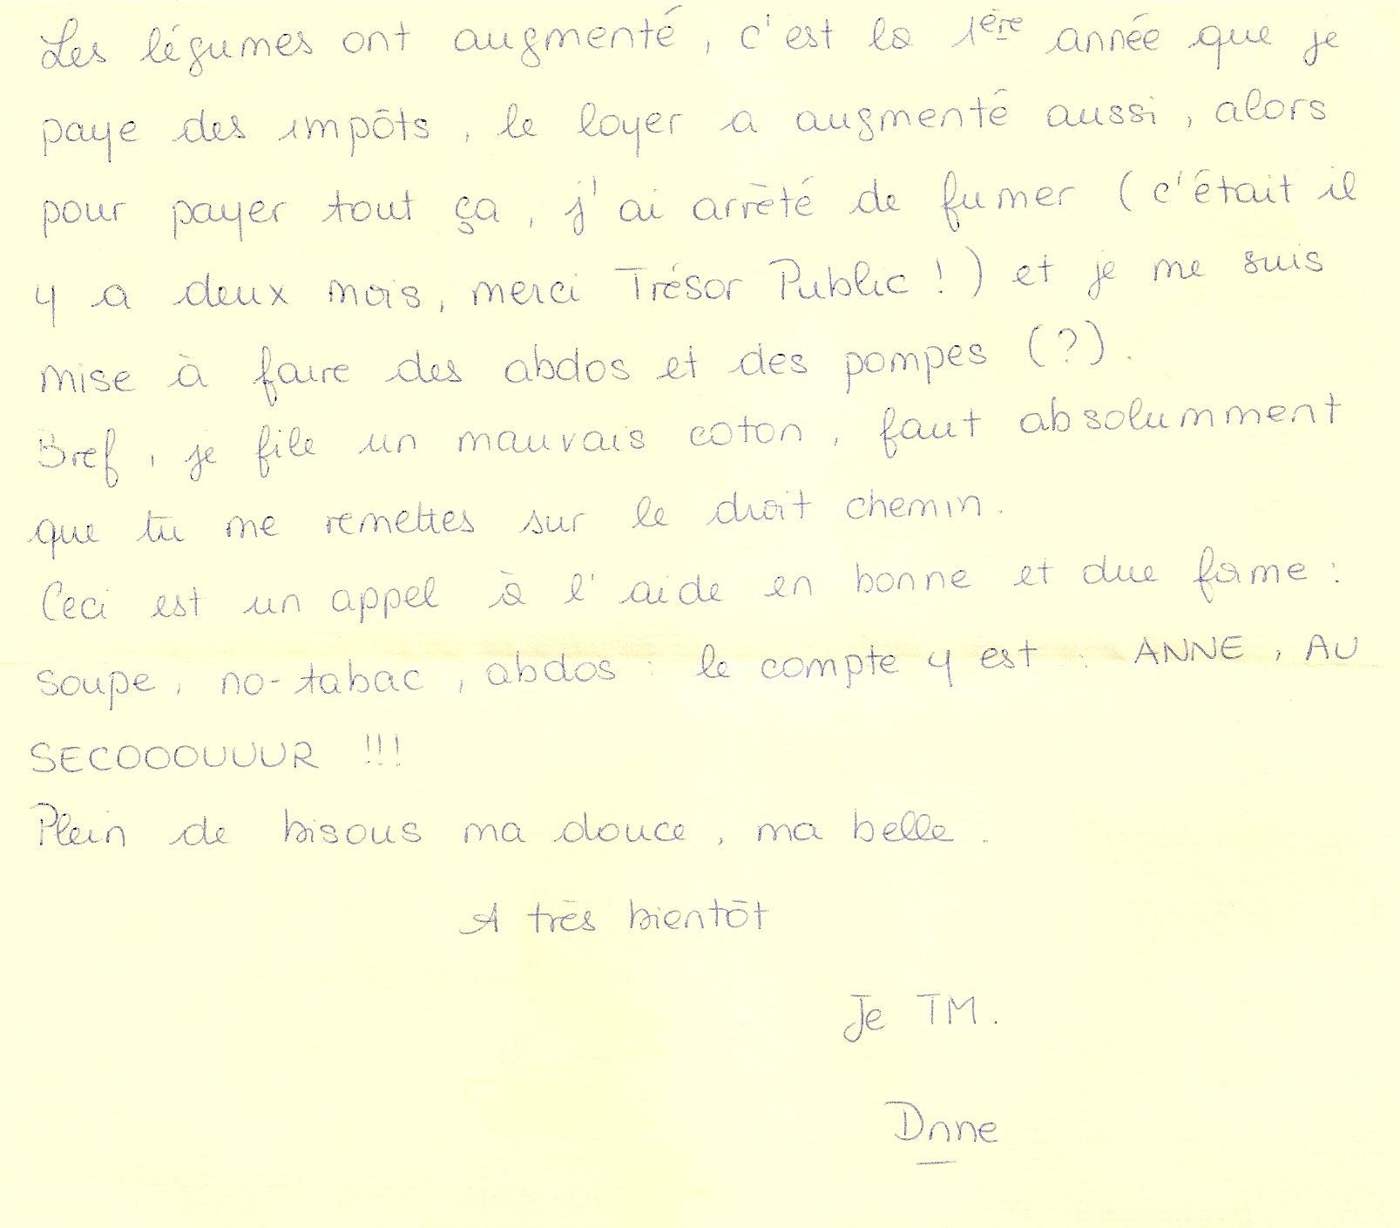 Les légumes ont augmenté, c'est la 1ère année que je
paye des impôts, le loyer a augmenté aussi, alors
pour payer tout ça, j'ai arrêté de fumer (c'était il
y a deux mois, merci Trésor Public !) et je me suis
mise à faire des abdos et des pompes (?).
Bref, je file un mauvais coton, faut absolumment
que tu me remettes sur le droit chemin.
Ceci est un appel à l'aide en bonne et due forme :
soupe, no-tabac, abdos : le compte y est : ANNE, AU
SECOOOUUUR !!!
Plein de bisous ma douce, ma belle.
A très bientôt
Je TM.
Dnne